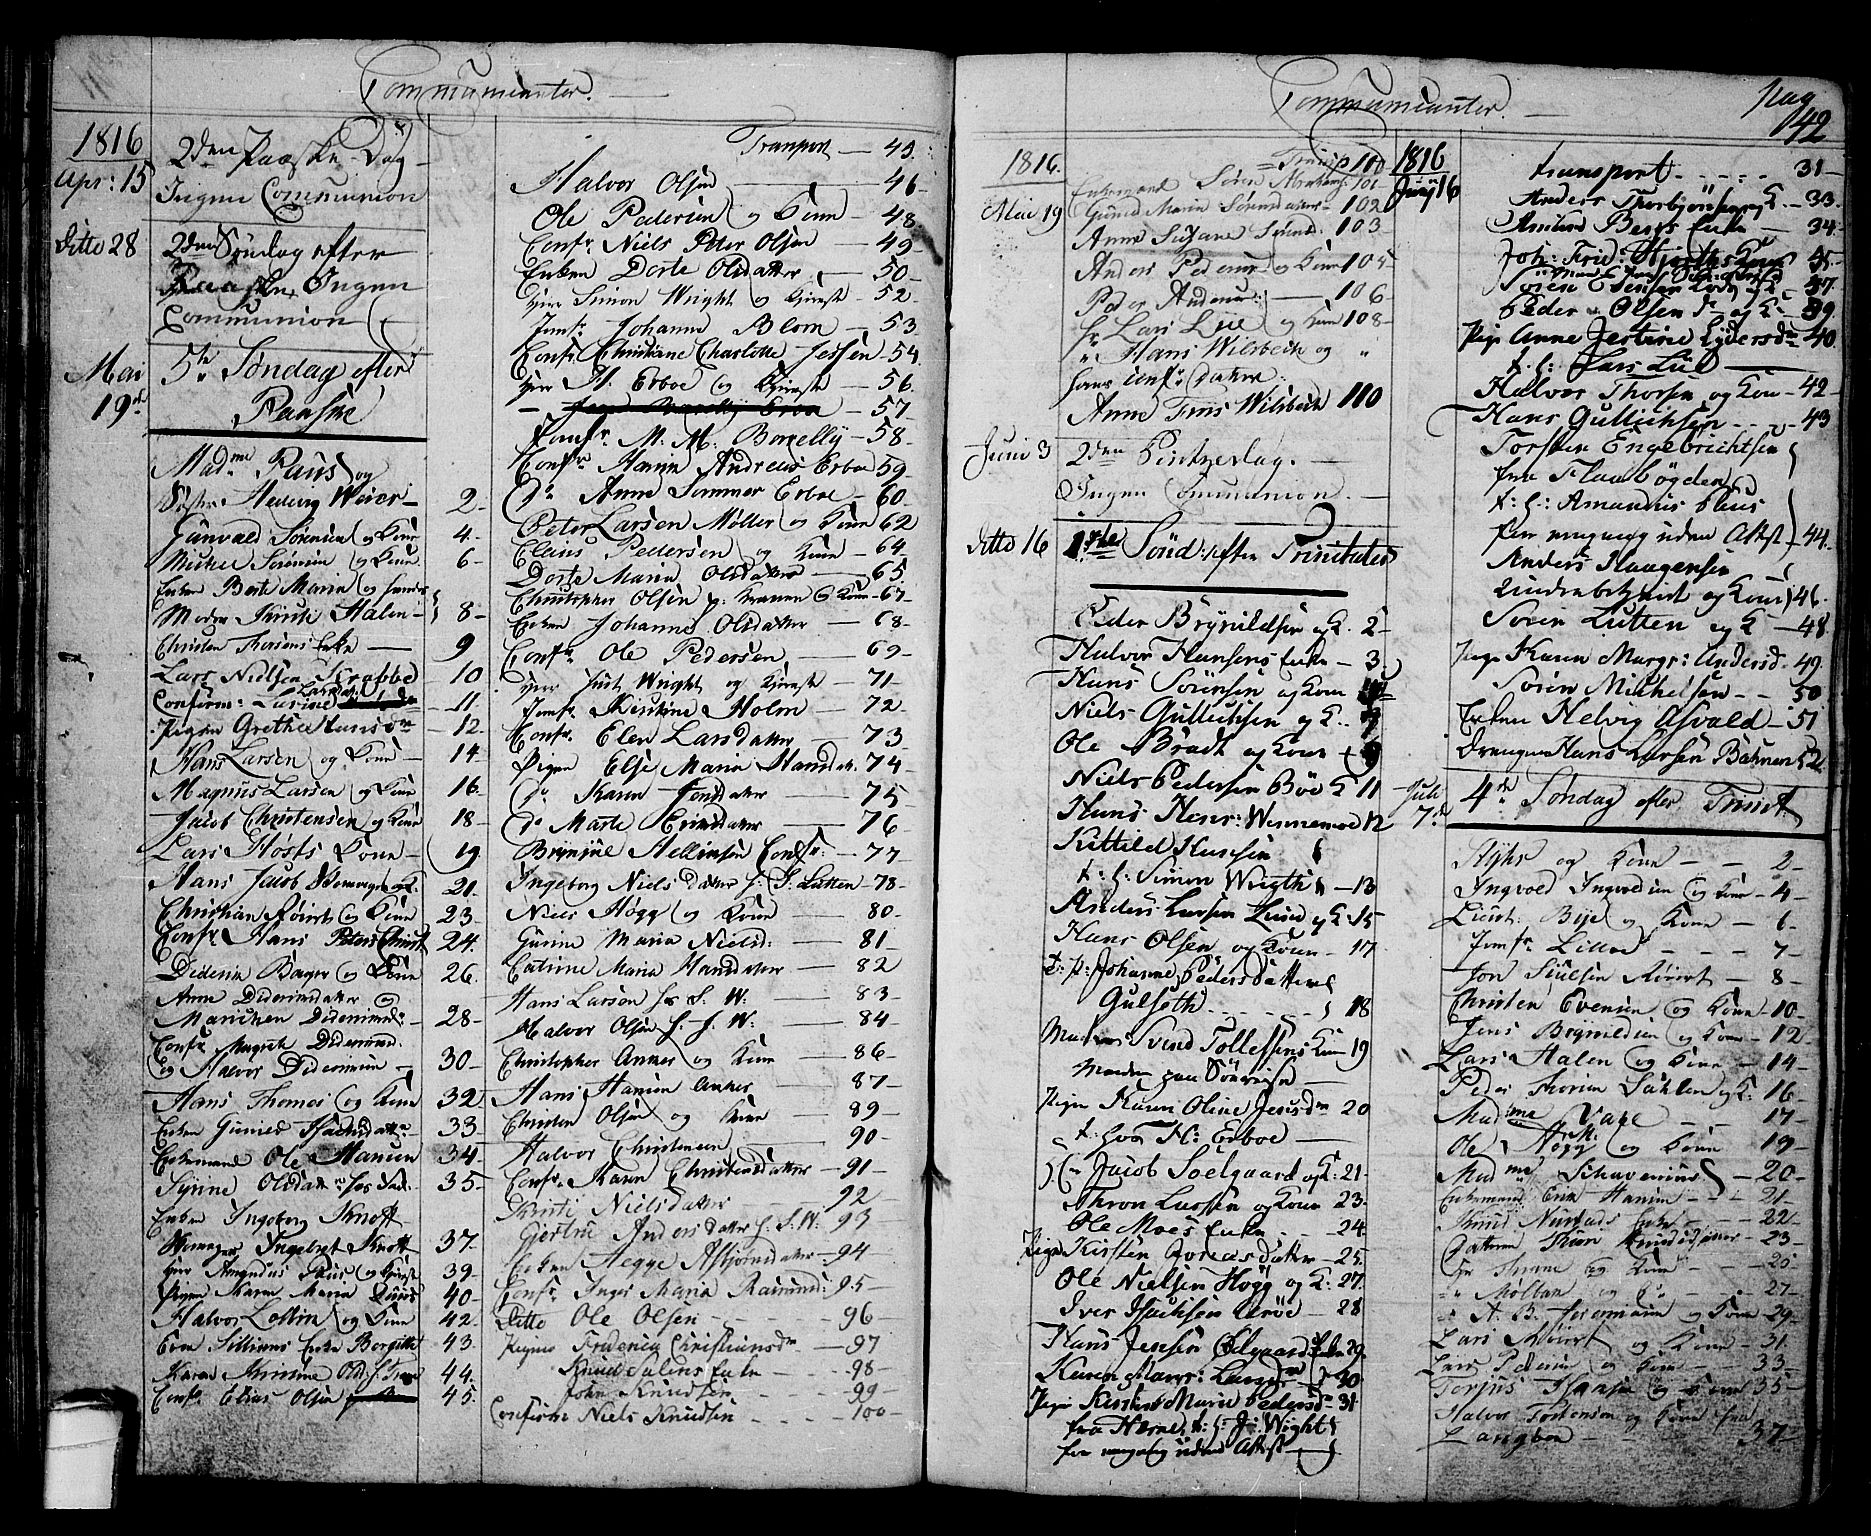 Communicanter.
1816
Apr: 15
2den Paaske-Dag
Ingen Communion
Ditto 28
2den Søndag efter
Paaske, Ingen
Communion
Mai
19de
5te Søndag efter
Paaske
Madme Paus og
Søster Hedevig Weier 2
Gunvald Sørensen og Kone 4
Michel Sørensen og Kone 6
Enken Berte Maria og hendes
Moder Kirsti Halen 8
Christen Thorsens Enke 9
Lars Nielsen Krabbe 10
Confirm: Larsdr 11
Pigen Grethe Hansdr 12
Hans Larsen og Kone 14
Magnus Larsen og Kone 16
Jacob Christensen og Kone 18
Lars Høsts Kone 19
Hans Jacob og K. 21
Christian Røiert og Kone 23
Confr Hans Peter Christ 24
Diderik Bøger og Kone 26
Anne Diderichsdatter og
Maricken 28
Confr Magrete
og Halvor 30
Hans Thomes og Kone 32
Enken Isachsdatter 33
Enkemand Ole Hansen 34
Syrine Olsdatter hos 35
Enken Ingeborg Knoft
Ingebret Knoft 37
Herr Amandus Paus og Kjereste 39
Pigen Karen Maria 40
Halvor og Kone 42
Enke Borgitte 43
Karen Kirstine Olsd. 44
Confr Elias Olsen 45
Transport 45
Halvor Olsen 46
Ole Pedersen og Kone 48
Confr Niels Peter Olsen 49
Enken Dorte Olsdatter 50
Herr Simon Wright og Kjereste 52
Jomfr Johanne Blom 53
Confr Christiane Charlotte Jessen 54
Herr H. Erboe og Kjereste 56
57
Jomfr. M. M. Borrelly 58
Confr Maria Andreas Erboe 59
Do Anne Sommer Erboe 60
Peter Larsen Møller og Kone 62
Claus Pedersen og Kone 64
Dorte Maria Olsdatter 65
Christopher Olsen og Kone 67
Enken Johanne Olsdatter 68
Confr Ole Pedersen 69
Herr Just Wright og Kjereste 71
Jomfr Kirstine Holm 72
Confr. Elen Larsdatter 73
Pigen Else Maria Hansdr. 74
Do Karen Jensdatter 75
Do Marte Erichsdatter 76
Brynjul Hellissen Confr: 77
Ingeborg Nielsdatter h: S: Lutken 78
Niels Høgg og Kone 80
Gurine Maria Nielsd: 81
Catrine Maria Hansdatter 82
Hans Larsen hos S. W: 83
Halvor Olsen h. S. W: 84
Christopher Anker og Kone 86
Hans Hansen Anker 87
Christen Olsen og Kone 89
Halvor Christensen 90
Confr. Karen Christensdatter 91
Kirsti Nielsdatter 92
Gjertru Andersdatter h. S. W: 93
Enken Aegge Asbjørnsdatter 94
Confr. Inger Maria Raimund: 95
Ditto Ole Olsen 96
Pigen Frederica Christiansdr 97
Knud Salens Enke 98
John Knudsen 99
Confirm Niels Knudsen 100
Communicanter.
pag
42
1816.
Mai 19
Transp 100
Enkemand Søren Abrahams: 101
Gunild Maria Sørensdatter 102
Anne Susane Lund: 103
Anders Pedersen og Kone 105
Peder Andersen 106
Hr Lars Lie og Kone 108
" Hans Wilsbech og "
hans Confr Datter:
Anne Friis Wilsbech 110
Juni 3
2den Pintzedag.
Ingen Communion.
Ditto 16
1ste Sønd: efter Trinitatis
Peder Brynildsen og K. 2
Halvor Hansens Enke 3
Hans Sørensen og Kone
Niels Gullichsen og K. 7
Ole Bradt og Kone 9
Niels Pedersen Böe K 11
Hans Hens: Wennemoe 12
Kittild Hansen
t. h: Simon Wrigth 13
Anders Larsen Lund og K. 15
Hans Olsen og Kone 17
t: p: Johanne Pedersdatter
Gulseth 18
Madme Svend Tollefsens Kone 19
Manden paa Söereise
Pige Karen Oline Jensdr 20
t. hos H: Erboe
Jacob Soelgaard og K: 21
Thron Larsen og Kone 23
Ole Moes Enke 24
Pigen Kirsten Andreasdatter 25
Ole Nielsen Høgg og K: 27
Iver Isachsen Uröe 28
Hans Jensen Ødegaards Enke 29
Karen Marg: Larsdr 30
Pige Kirstine Marie Pedersdr 31
fra Herne, t. h: J: Wight
for med uden Attest
1816
Junij 16
transport 31
Anders Thorbjörnsen og K. 33
Amund Bergs Enke 34
Joh: Frid: Hjorths Kone
Sören Jensen og K. 37
Peder Olsen og K. 39
Pige Anne Jestine Ejdersdr 40
t. h: Lars Lie
Halvor Thorsen og Kone 42
Hans Gullichsen 43
Torsten Engebrichtsen
fra Flaabögden
t: h: Amandus Paus
for uden Attest 44
Anders Haagensen
Underbetjent og Kone 46
Søren Lutken og K 48
Pige Karen Margr: Andersd 49
Soren Michelsen 50
Enken Helvig Asvald 51
Drengen Hans Larsen Bakken 52
Juli
7de
4de Søndag efter Trinit:
og Kone 2
Ingvold Ingvoldsen og Kone 4
Lieut: Bye og Kone 6
Jomfr. Lillon 7
Jon Siulsen Röiert 8
Christen Evensen og Kone 10
Jens Brynildsen og Kone 12
Lars Halen og Kone 14
Peder Thorsen Dahlen og K: 16
Madme Vahl 17
Ole Høgg og Kone 19
Madme Schavenius 20
Enkemand Erik Hansen 21
Knud Nirstads Enke 22
23
Hr Thrane og Kone 25
" Moltzau og Ko 27
" A. B. Herremann og Kone 29
Lars Röiert og Kone 31
Lars Pedersen og Kone 33
Torjus Hansen og Kone 35
Halvor Torstensen og Kone fra
Langöen 37